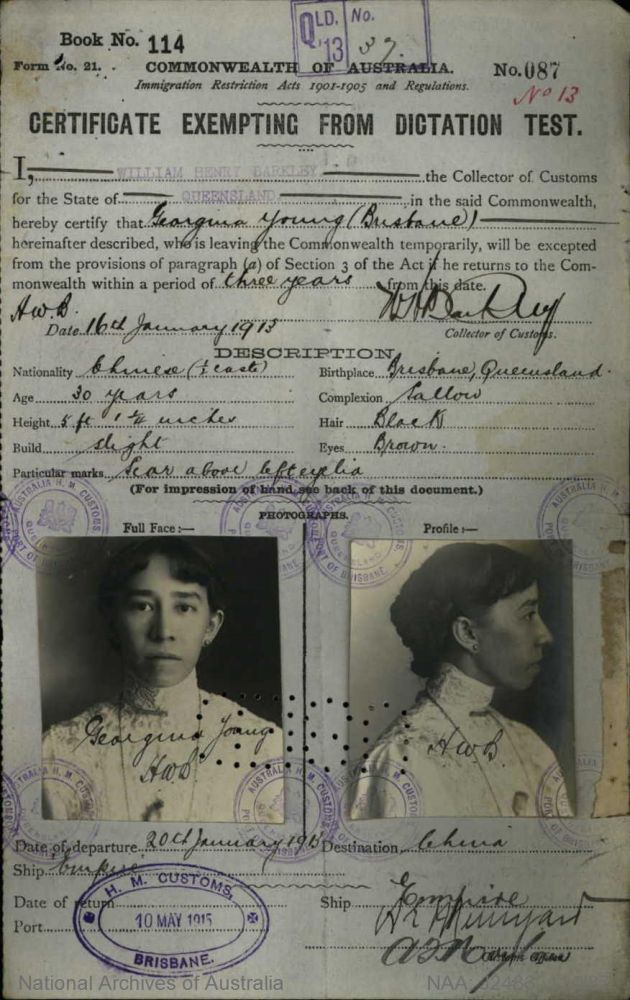 QLD. No.
'13 37.
Book No. 114
Form No. 21. COMMONWEALTH OF AUSTRALIA. No. 087
Immigration Restriction Acts 1901-1905 and Regulations. No 13
CERTIFICATE EXEMPTING FROM DICTATION TEST.
I, WILLIAM HENRY BARKLEY the Collector of Customs
for the State of QUEENSLAND in the said Commonwealth,
hereby certify that Georgina Young (Brisbane)
hereinafter described, who is leaving the Commonwealth temporarily, will be excepted
from the provisions of paragraph (a) of Section 3 of the Act if he returns to the Com-
monwealth within a period of three years from this date.
HWB. WHBarkley
Date 16th January 1913 Collector of Customs.
DESCRIPTION.
Nationality Chinese (½ caste) Birthplace Brisbane, Queensland.
Age 30 years Complexion Sallow
Height 5 ft 1 ½ inches Hair Black
Build slight Eyes Brown.
Particular marks Scar above left eyelid
(For impression of hand see back of this document.)
PHOTOGRAPHS.
Full Face :— Profile :—
AUSTRALIA H. M. CUSTOMS
QUEENSLAND
PORT OF BRISBANE
Georgina Young
HWB HWB.
Date of departure 20th January 1913 Destination China
Ship Empire
Date of return Ship Empire
Port
H. M. CUSTOMS,
10 MAY 1915
BRISBANE.
National Archives of Australia NAA